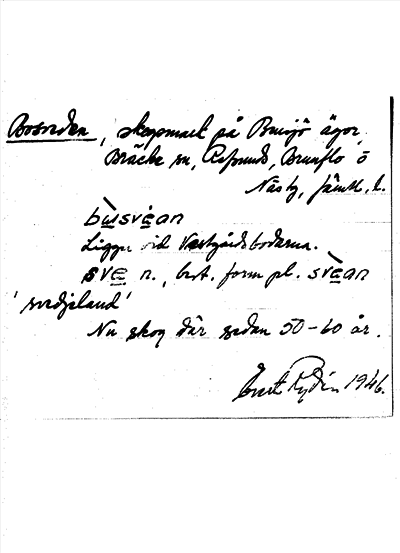 Bosveden, skogsmark på Bensjö ägor,
Bräcke sn, Refsunds, Brunflo o
Näs tg, Jämtl. l.
bùsvèan
Ligger vid Västgårdsbodarna.
sve n., best. form pl. svèan
'svedjeland'
Nu skog där sedan 50-60 år.
Evert Rydén 1946.